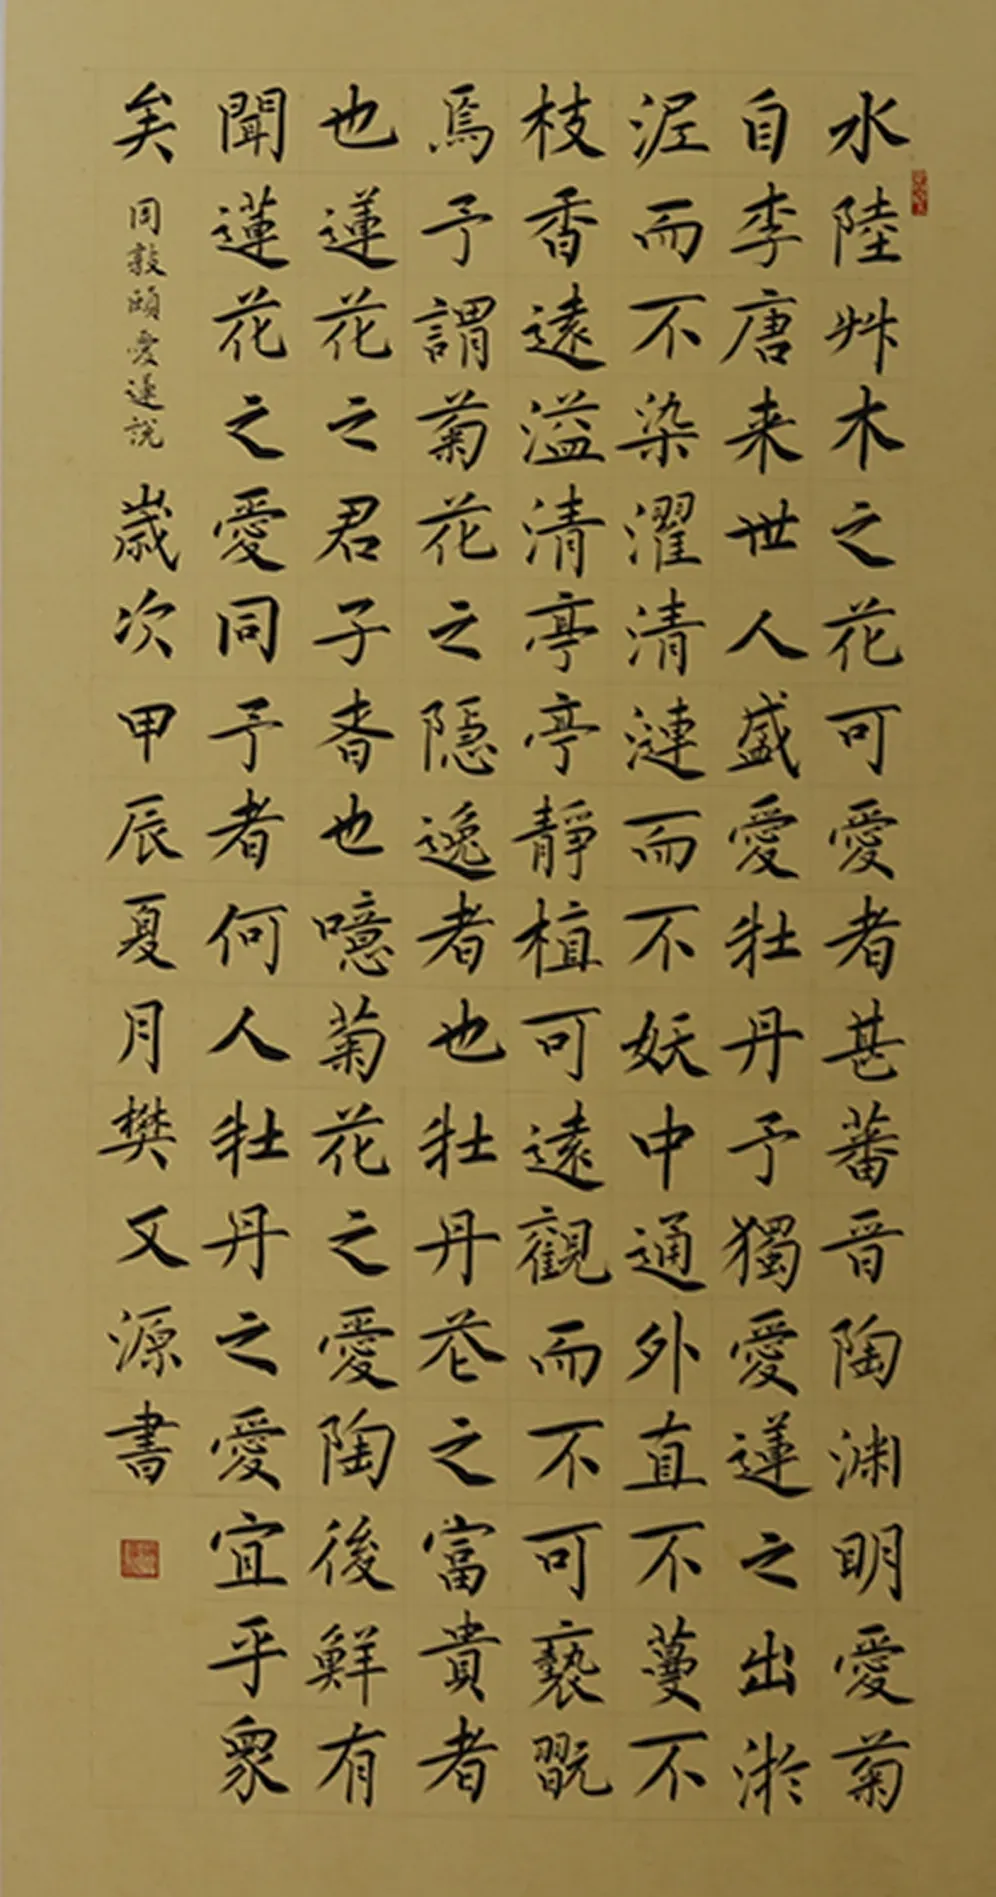 水陸艸木之花可愛者甚蕃晋陶渊明愛菊
自李唐来世人盛愛牡丹予獨愛蓮之出淤
泥而不染濯清漣而不妖中通外直不蔓不
枝香遠溢清亭亭靜植可遠觀而不可褻翫
焉予謂菊花之隱逸者也牡丹花之富貴者
也蓮花之君子者也噫菊花之愛陶後鮮有
聞蓮花之愛同予者何人牡丹之愛宜乎衆
矣 周敦頤愛蓮說 歲次甲辰夏月樊文源書